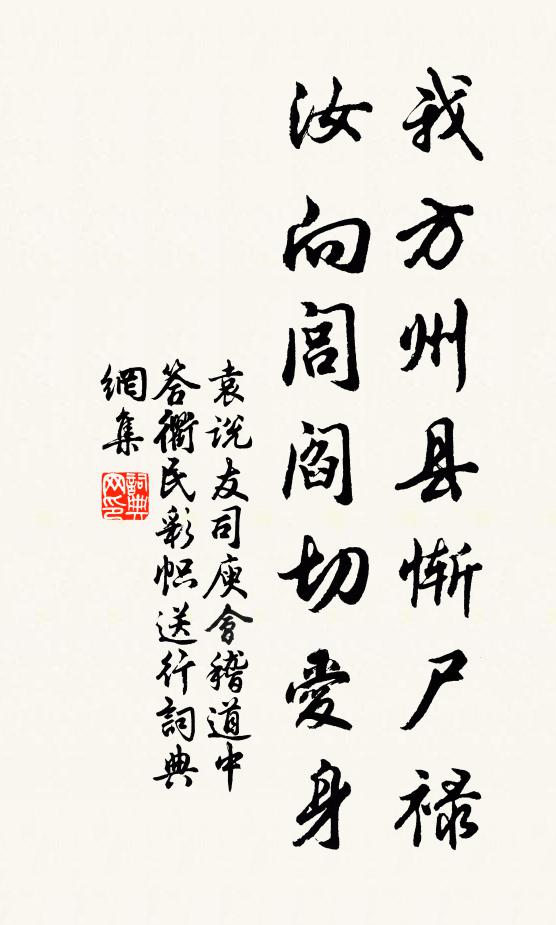 我方州县惭尸禄
汝向闾阎切爱身
袁说友司庾會稽道中
答衢民彩帜送行詞典
網集
詞典网印